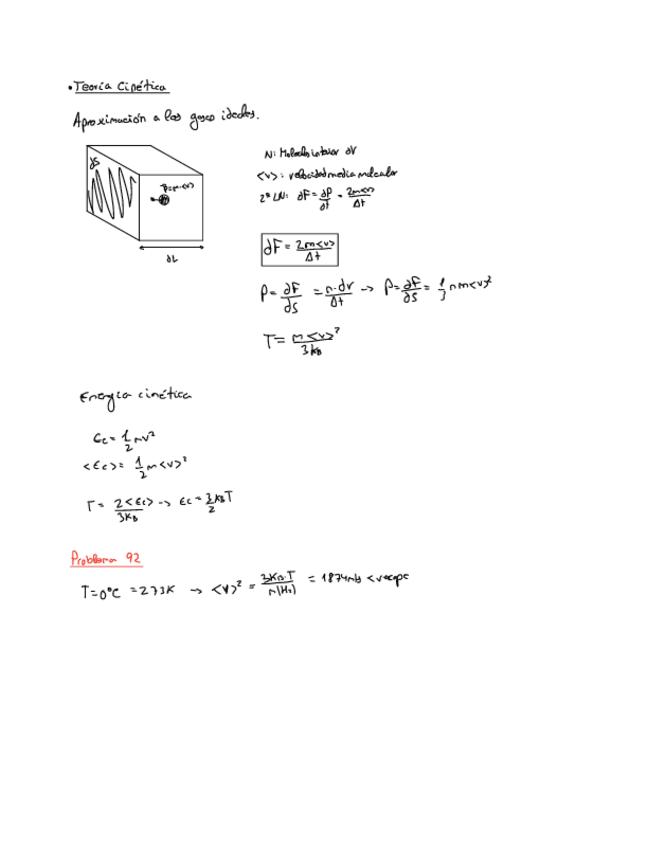 • Teoría Cinética
Aproximación a los gases ideales.
dS
P=m·<v>
dL
N: Moléculas interior dV
<v>: velocidad media molecular
2ª LN: dF = dP/dt = 2m<v>/Δt
dF = 2m<v>/Δt
P = dF/dS = n·dv/Δt → P = dF/dS = 1/3 n m <v>²
T = m<v>²/3kB
Energía cinética
Ec = 1/2 mv²
<Ec> = 1/2 m<v>²
T = 2<Ec>/3KB → Ec = 3/2 KBT
Problema 92
T=0°C = 273K → <v>² = 3KB·T/m(H2) = 1874 m/s < vescape